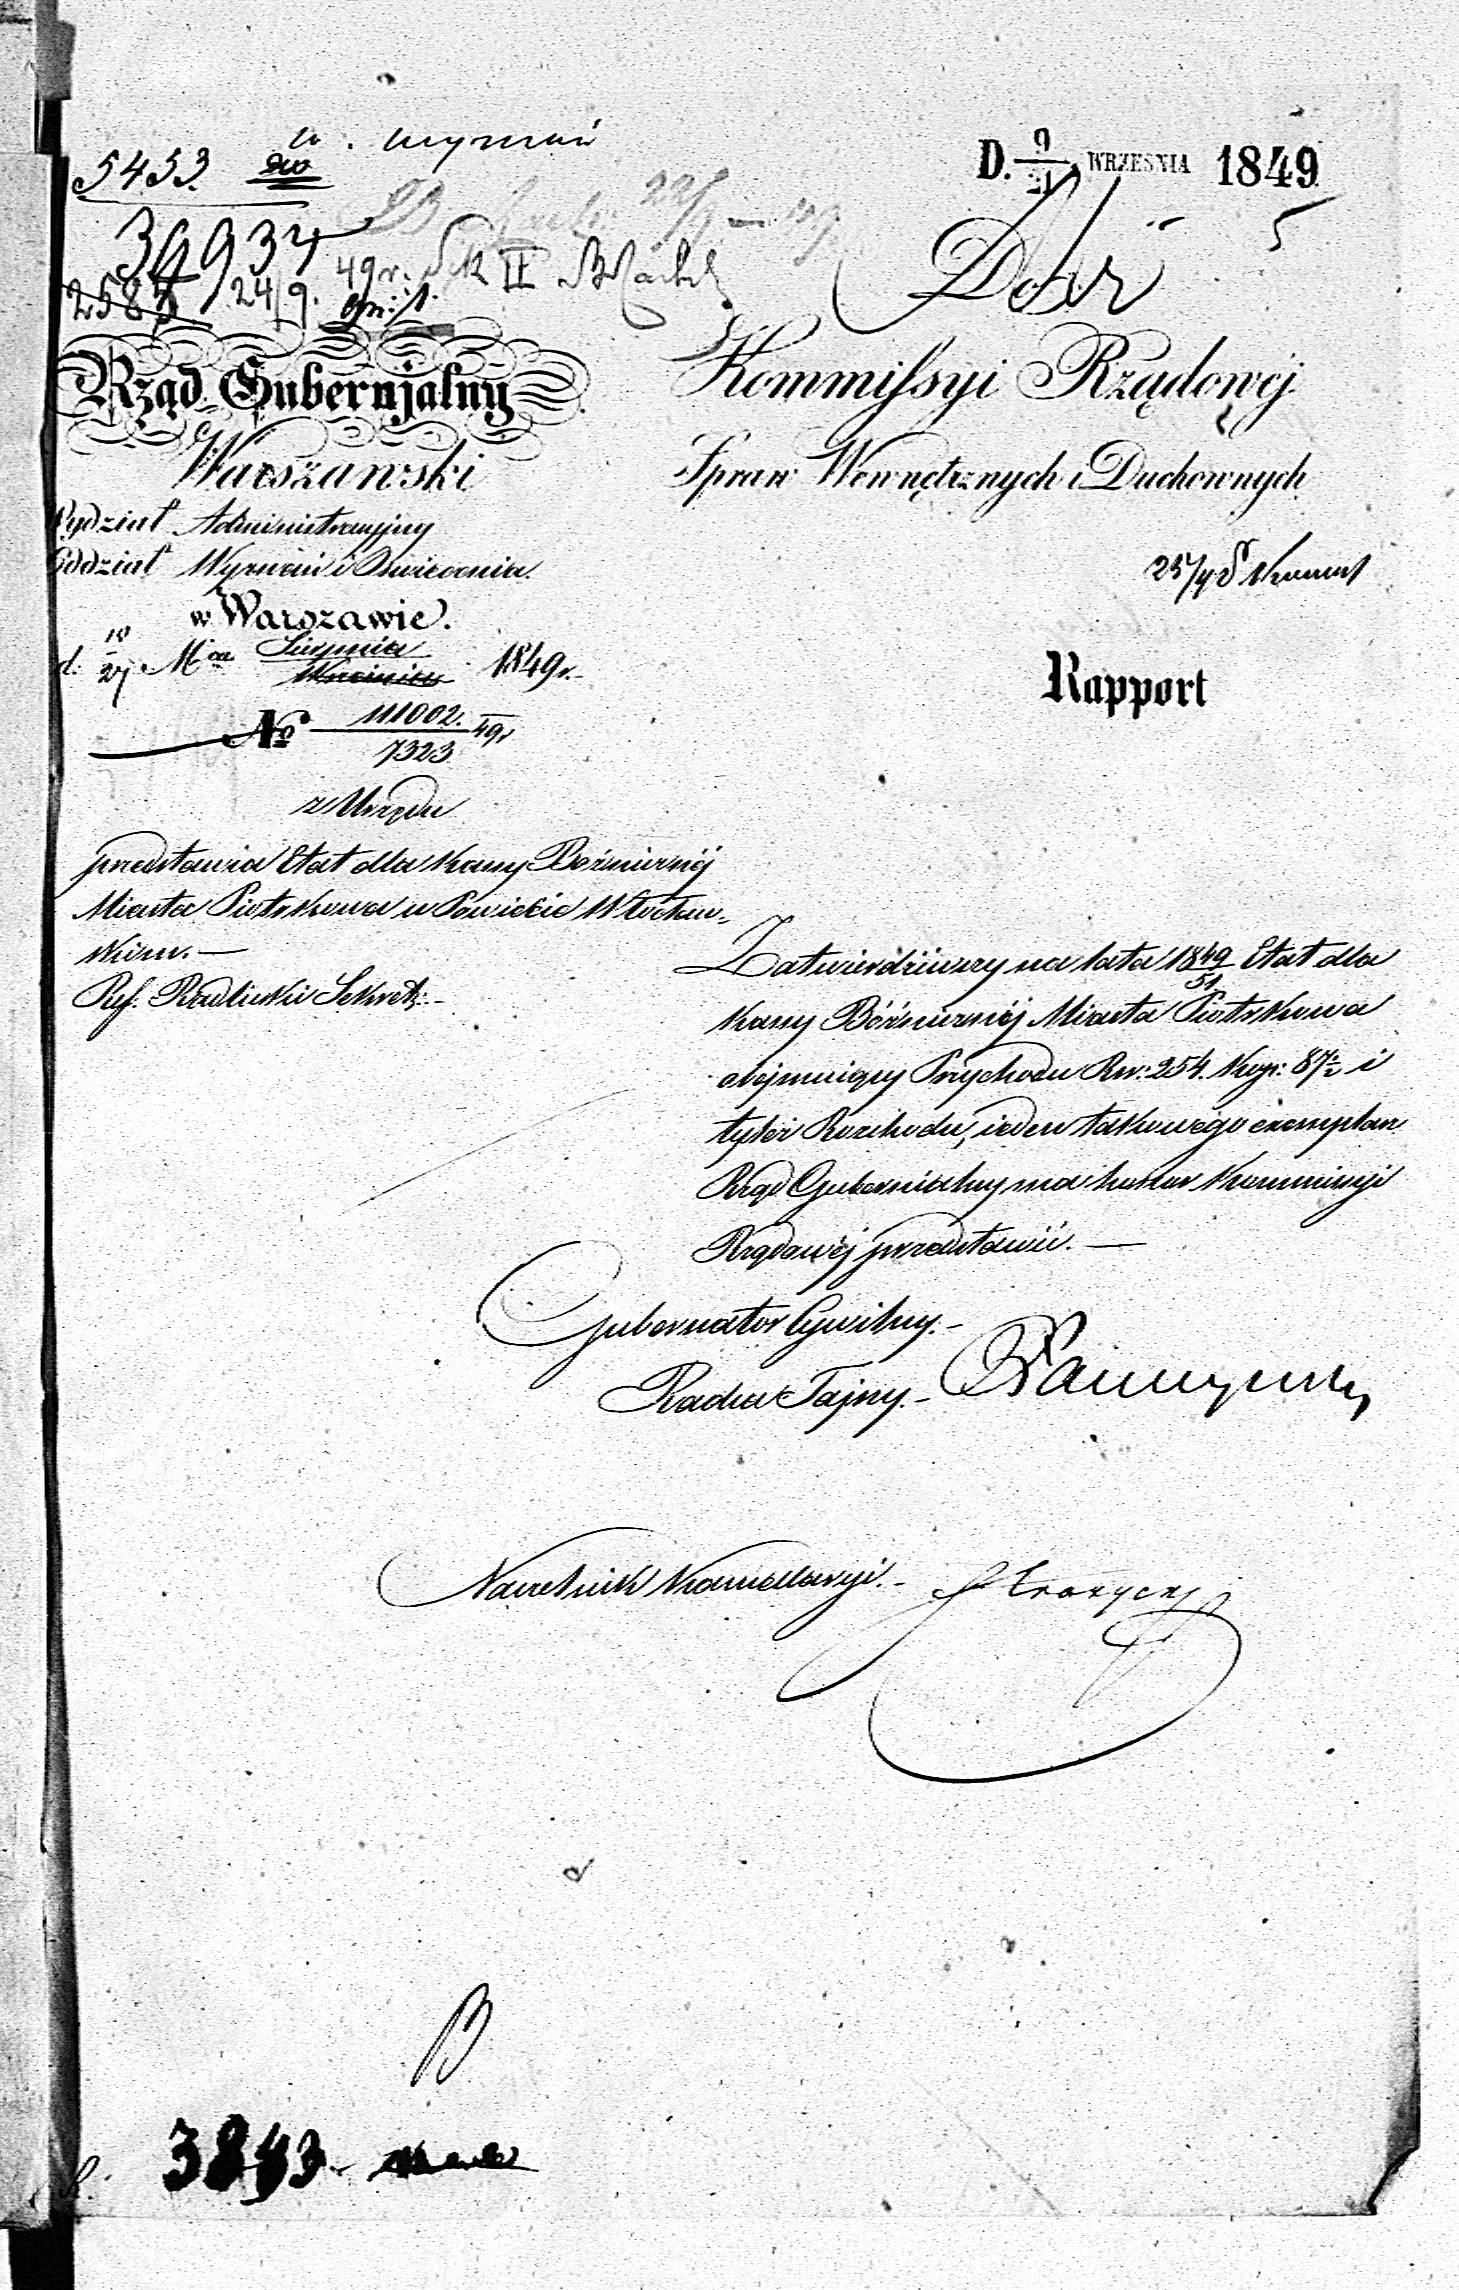 5453.
D. 9/21 WRZEŚNIA 1849
5
39934
49 r.
2587 24/9.
Rząd Gubernjalny
Warszawski
Wydział Administracyjny
Oddział Wyznań i Oświecenia.
w Warszawie.
d. 27 Mca Sierpnia Września 1849 r.
No 111002./7323 49r
z Urzędu
przedstawia Etat dla Kassy Bożniczéj
Miasta Piotrkowa w Powiecie Włocław-
skim. —
Ref. Radlicki Sekret: -
Do
Kommissyi Rządowej
Spraw Wewnętrznych i Duchownych
Rapport
Zatwierdziwszy na lata 1849/51 Etat dla
Kassy Bóżnicznéj Miasta Piotrkowa
obejmujący Przychodu Rsr: 254. Kop: 87½ i
tyleż Rozchodu, jeden takowego exemplarz
Rząd Gubernialny ma honor Kommissyi
Rządowéj przedstawić. —
Gubernator Cywilny. -
Radca Tajny. -
Naczelnik Kancellaryi. -
B
3843